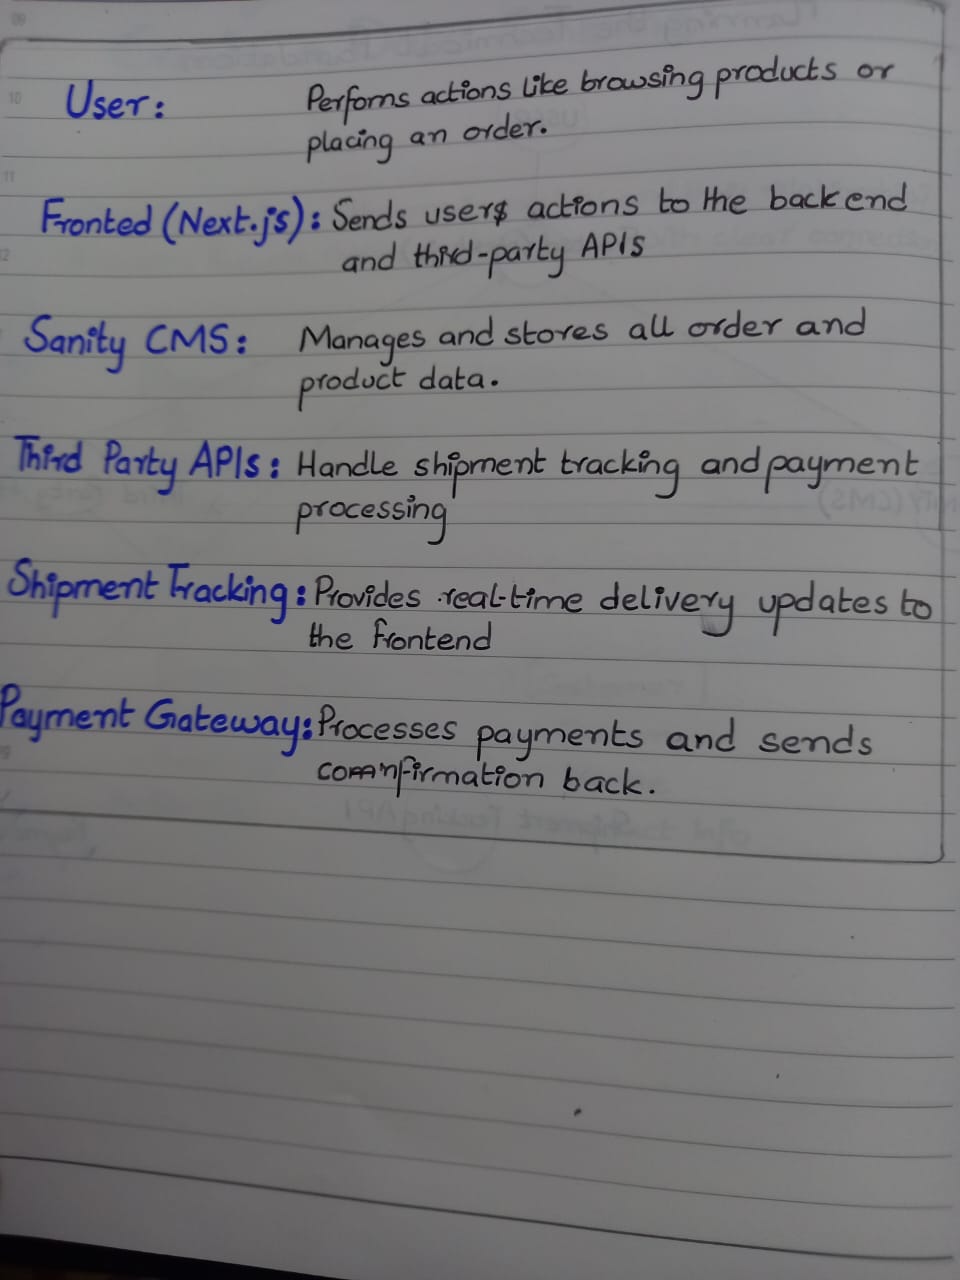 User: Perfoms actions like browsing products or
placing an order.
Fronted (Next.js): Sends users actions to the backend
and third-party APIs
Sanity CMS: Manages and stores all order and
product data.
Third Party APIs: Handle shipment tracking and payment
processing
Shipment Tracking: Provides real-time delivery updates to
the frontend
Payment Gateway: Processes payments and sends
comnfirmation back.